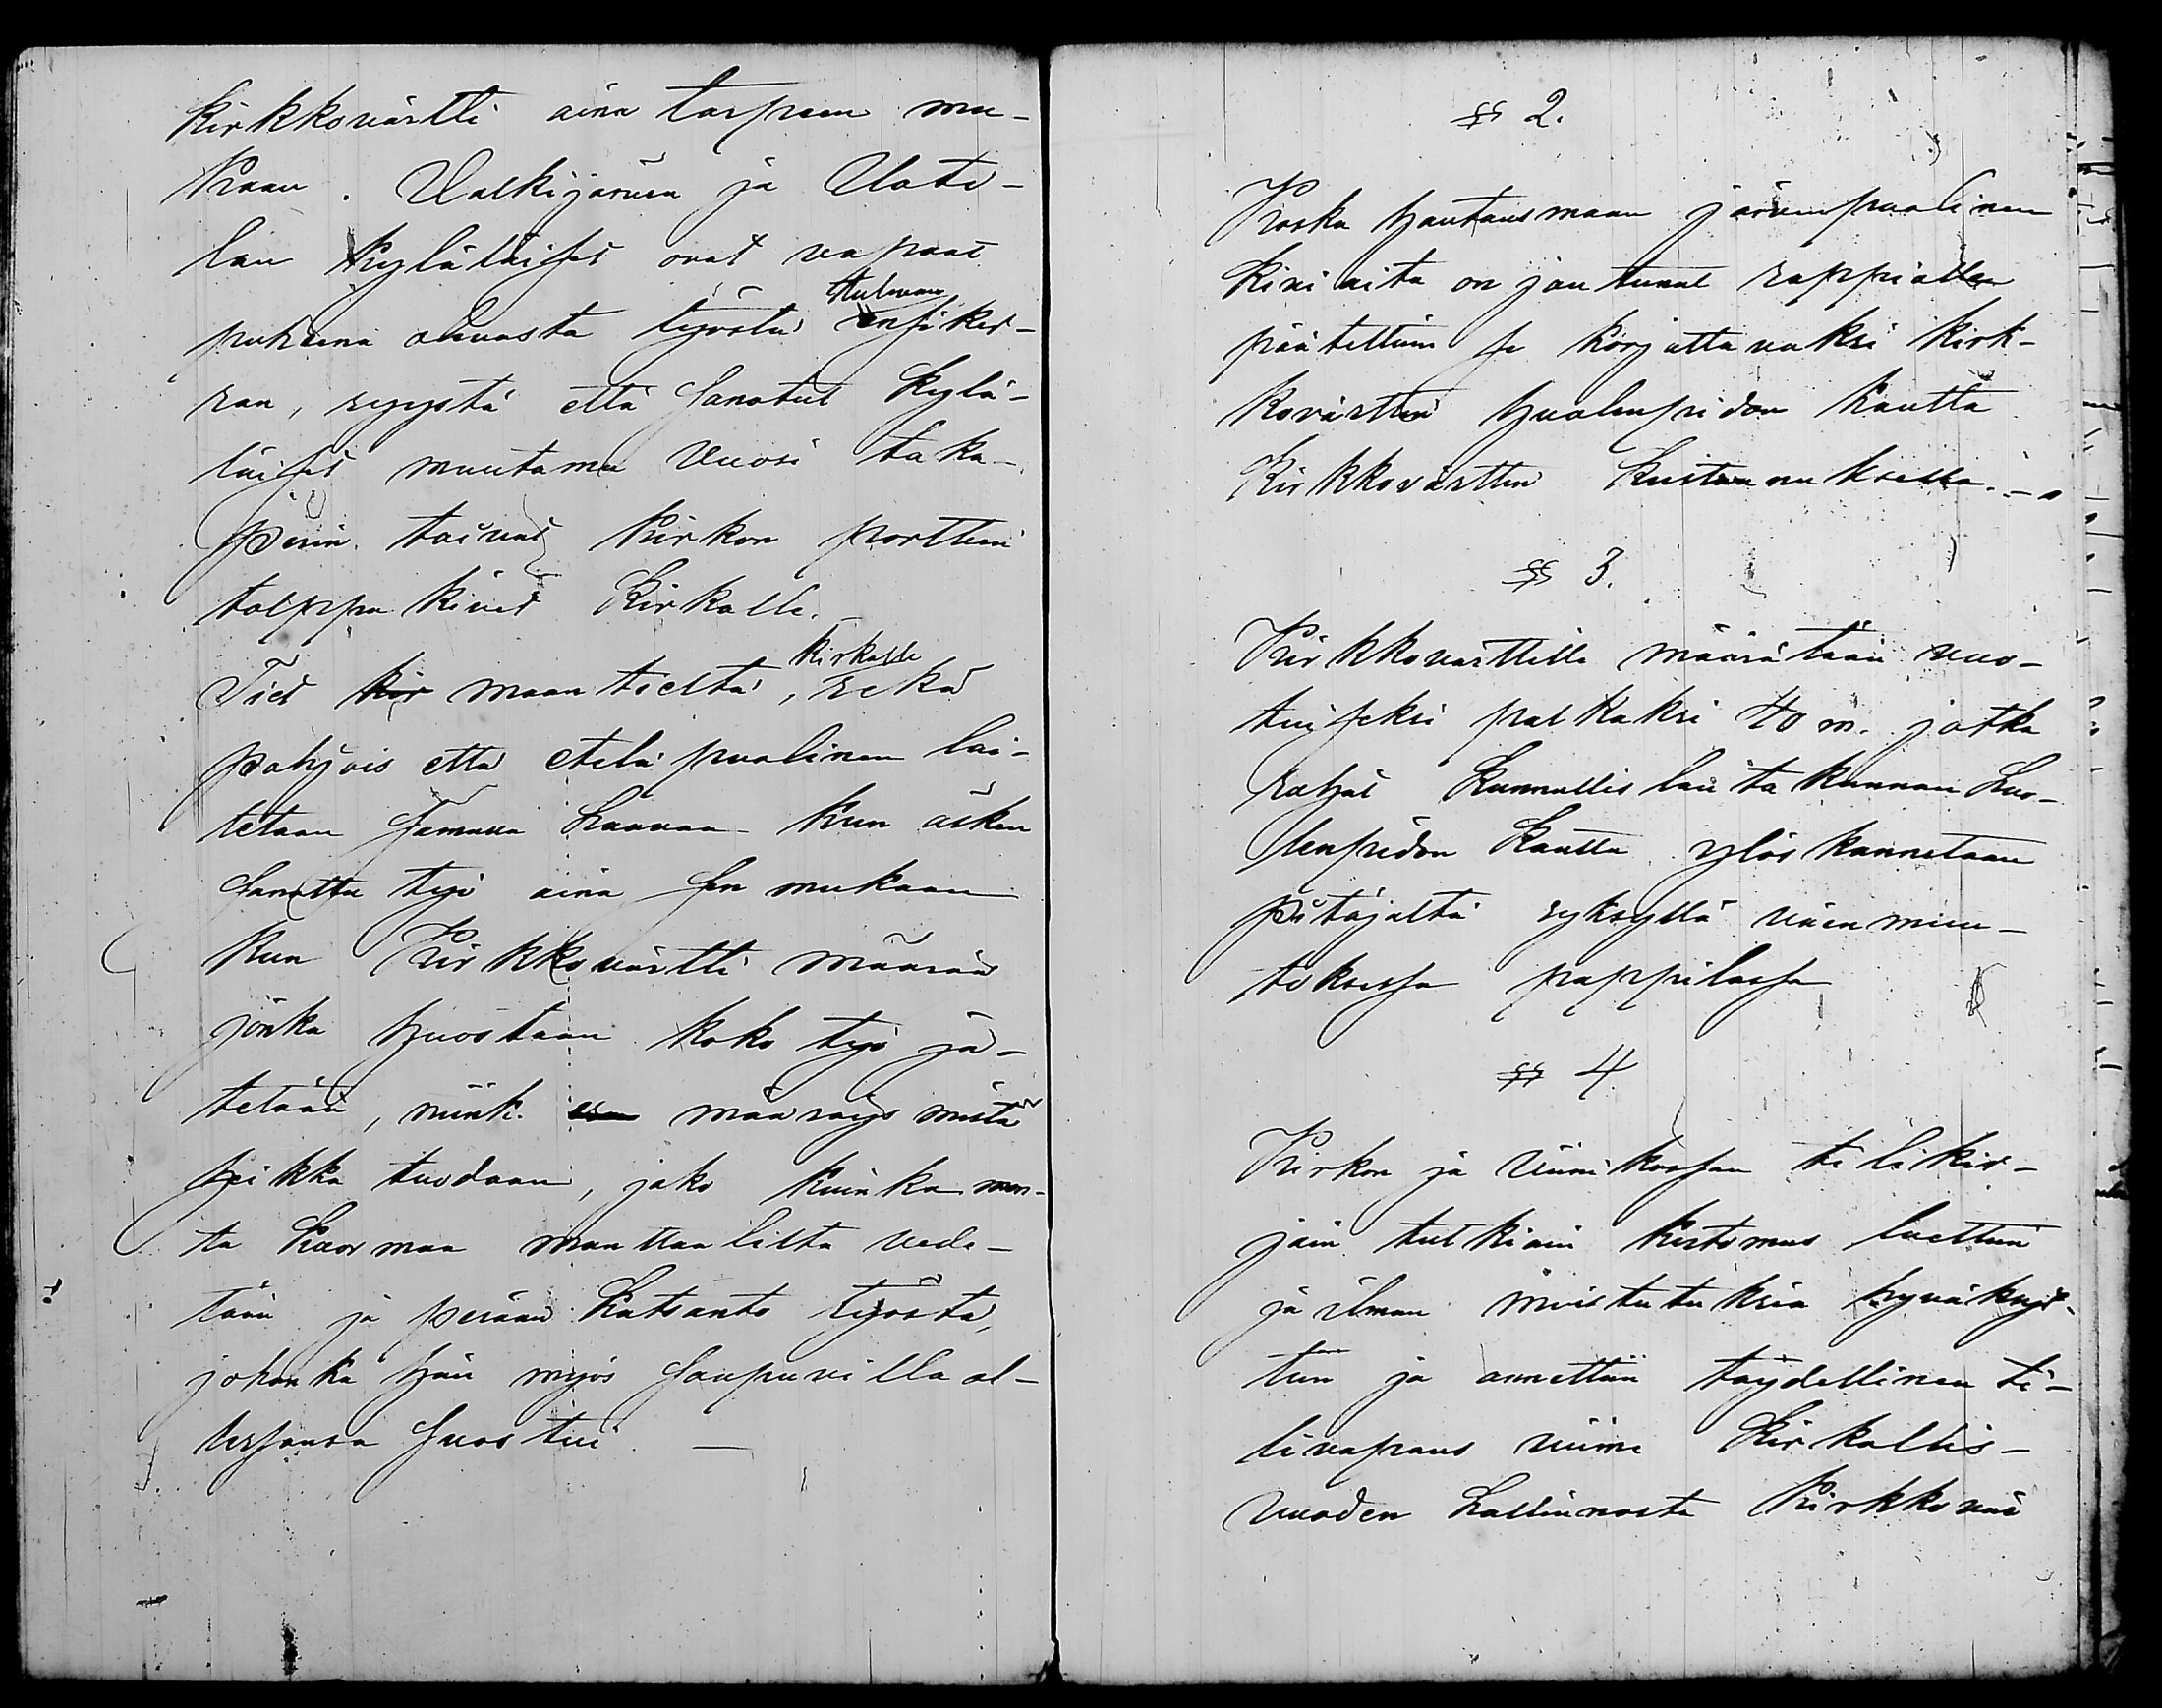 kirkkovärtti aina tarpeen mu-
kaan. Valkijärven ja Uoti-
lan kyläläiset ovat vapaat
puheena olevasta työstä tulevan ensiker-
ran, syystä että sanotut kylä-
läiset muutama vuosi taka-
perin toivat kirkon porttein
tolppa kivet Kirkolle.
Tiet kir maantieltä, kirkolle sekä
pohjois että etelä puolinen lai-
tetaan samaan kuntaan kun äsken
sanottu työ aina sen mukaan
kun Kirkkovärtti määrää
jonka huostaan koko työ jä-
tetään, niink. määräys mistä
hiekka tuodaan, joko kuinka mon-
ta kuormaa manttaalilta vede-
tään ja perään katsanto työstä,
johonka hän myös saapuvilla ol-
lessansa suostui. —
§§ 2.
Koska hautausmaan järvenpuolinen
kivi aita on joutunut rappiolle
päätettiin se korjattavaksi kirk-
kovärttin huolenpidon kautta
Kirkkovärttin kustannuksella. —
§§ 3.
Kirkkovärttille määrätään vuo-
tuiseksi palkaksi 40 m. jotka
rahat Kunnallislautakunnan huo-
lenpidon kautta ylöskannetaan
pitäjältä syksyllä väenmuu-
toksessa pappilassa
§§ 4
Kirkon ja viinikassan tilikir-
jain tutkiain kertomus luettiin
ja ilman muistutuksia hyväksyt-
tiin ja annettiin täydellinen ti-
livapaus viime Kirkollis-
vuoden hallinnosta Kirkkovär